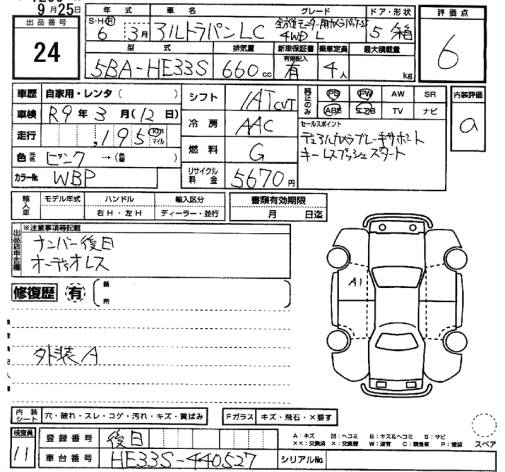 9月25日
出品番号
24
年式 車名 グレード ドア・形状
S・H・R 6年 3月 アルトラパンLC 全方位モニター用カメラパッケージ 4WD L 5 箱
型式 排気量 新車保証書 乗車定員 最大積載量
有効記入
5BA-HE33S 660cc 有 4人 kg
評価点
6
車歴 自家用・レンタ( )
車検 R9年3月(12日)
走行 ,195 km マイル
色 ピンク → ( )
カラーNo. WBP
シフト IAT CVT
冷房 AAC
燃料 G
リサイクル料金 5670円
PS PW AW SR
ABS エアB TV ナビ
セールスポイント
デュアルカメラブレーキサポート
キーレスプッシュスタート
内装評価
a
輸入車 モデル年式 ハンドル 輸入区分
年 右H・左H ディーラー・並行
書類有効期限
月 日迄
出品店申告欄
※注意事項等記載
ナンバー後日
オーディオレス
修復歴 有 箇所
外装A
A1
内装シート 穴・破れ・スレ・コゲ・汚れ・キズ・黄ばみ
Fガラス キズ・飛石・×要す
検査員
11
登録番号 後日
車台番号 HE33S-440527
シリアルNo.
A:キズ U:ヘコミ B:キズ&ヘコミ S:サビ
XX:交換済 X:交換要 W:波有 C:腐食有 P:塗装
スペア